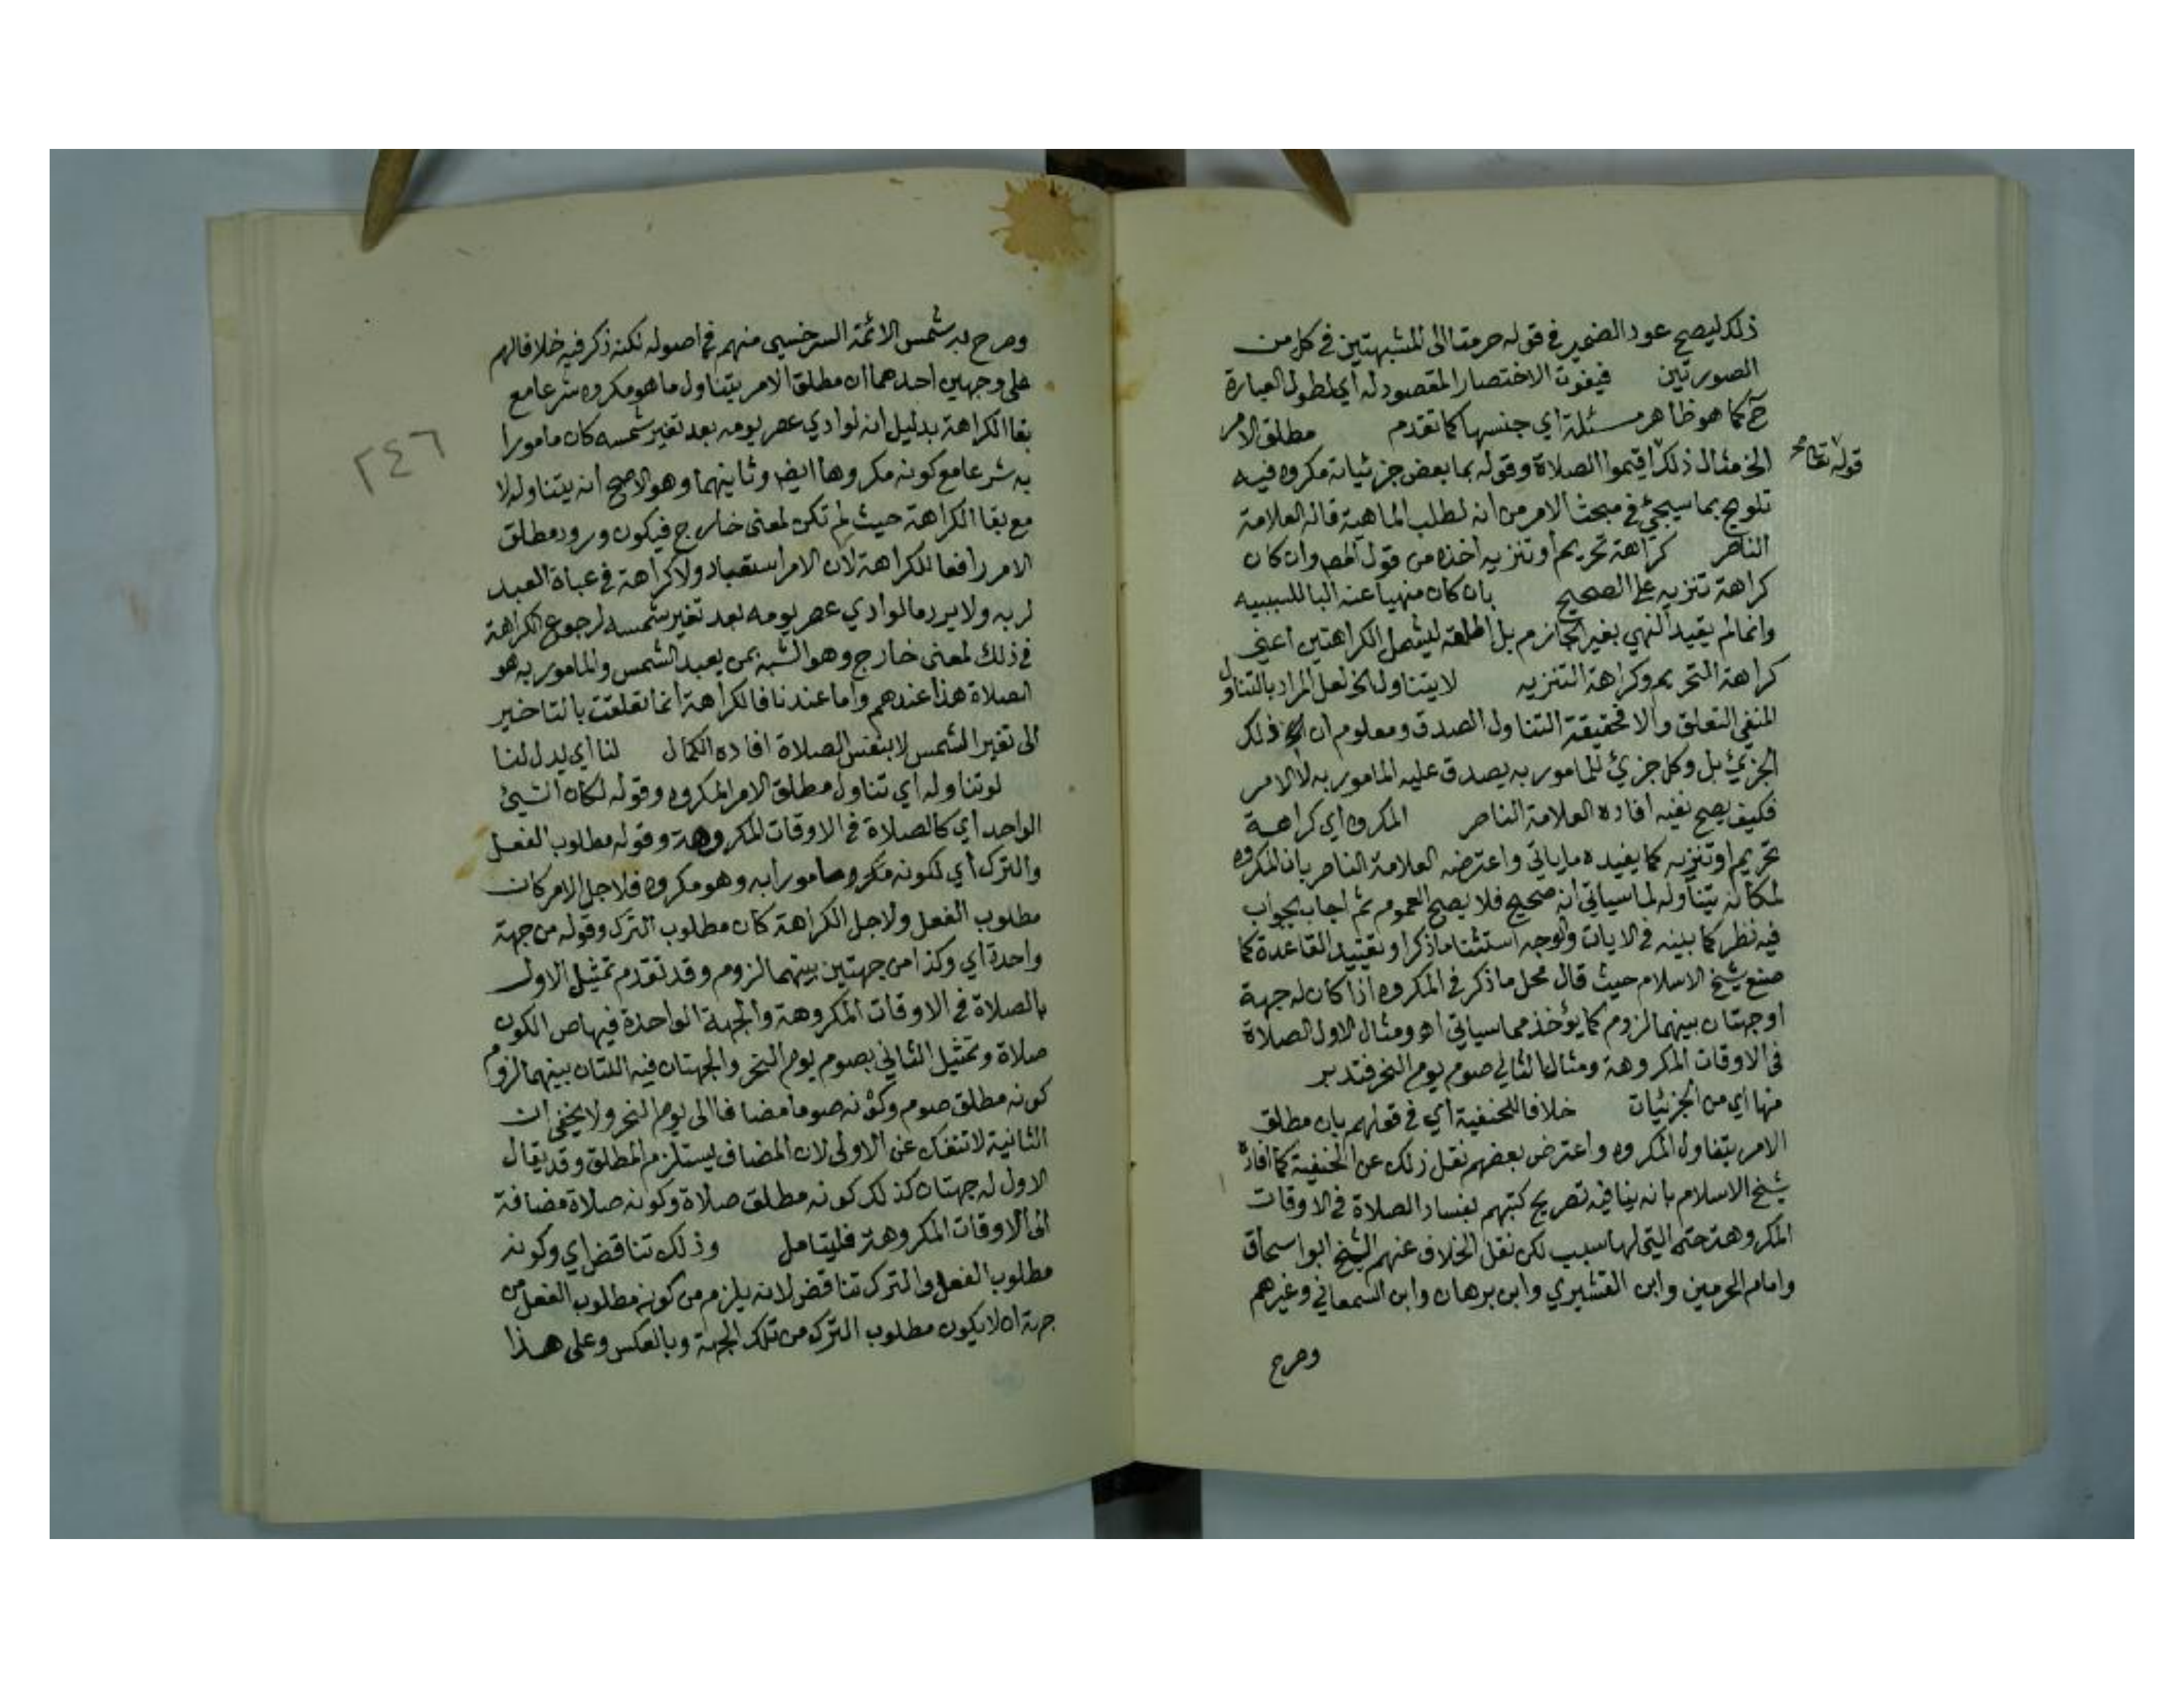 ذلك ليصح عود الضمير في قوله حرمتا الى المشبهتين في كل من
الصورتين فيفوت الاختصار المقصود له أي لطول العبارة
ح كما هو ظاهر مسئلة اي جنسها كما تقدم مطلق الامر
الخ مثال ذلك اقيموا الصلاة وقوله بما بعض جزئياته مكروه فيه
قوله تعالى صح
تلويح بما سيجئ في مبحث الامر من انه لطلب الماهية قاله العلامة
الناصر كراهة تحريم او تنزيه اخذه من قول المص وان كان
كراهة تنزيه على الصحيح بان كان منهيا عنه البا للسببيه
وانما لم يقيد النهي بغير الجازم بل اطلقه ليشمل الكراهتين اعني
كراهة التحريم وكراهة التنزيه لا يتناول الخ لعل المراد بالتناول
المنفي التعلق والا فحقيقة التناول الصدق ومعلوم ان ذلك
الجزئي بل وكل جزئ للمامور به يصدق عليه المامور به لا الامر
فكيف يصح نفيه افاده العلامة الناصر المكروه اي كراهة
تحريم او تنزيه كما يفيده ما ياتي واعترضه العلامة الناصر بان المكروه
لمكانه يتناوله لما سياتي انه صحيح فلا يصح العموم ثم اجاب بجواب
فيه نظر كما بينه في الايات والوجه استثنا ما ذكر او تقييد القاعدة كما
صنع شيخ الاسلام حيث قال محل ما ذكر في المكروه اذا كان له جهة
او جهتان بينهما لزوم كما يؤخذ مما سياتي اه ومثال الاول الصلاة
في الاوقات المكروهة ومثال الثاني صوم يوم النحر فتدبر
منها اي من الجزئيات خلافا للحنفية اي في قولهم بان مطلق
الامر يتناول المكروه واعترض بعضهم نقل ذلك عن الحنفية كما افاده
شيخ الاسلام بانه ينافيه تصريح كتبهم بفساد الصلاة في الاوقات
المكروهة حتى التي لها سبب لكن نقل الخلاف عنهم الشيخ ابو اسحاق
وامام الحرمين وابن القشيري وابن برهان وابن السمعاني وغيرهم
وصرح
وصرح به شمس الائمة السرخسي منهم في اصوله لكنه ذكر فيه خلافا لهم
على وجهين احدهما ان مطلق الامر يتناول ما هو مكروه شرعا مع
بقا الكراهة بدليل انه لو ادي عصر يومه بعد تغير شمسه كان مامورا
٢٤٦
به شرعا مع كونه مكروها ايض وثانيهما وهو الاصح انه يتناوله لا
مع بقا الكراهة حيث لم تكن لمعنى خارج فيكون ورود مطلق
الامر رافعا للكراهة لان الامر استعباد ولا كراهة في عباة العبد
لربه ولا يرد ما لو ادي عصر يومه بعد تغير شمسه لرجوع الكراهة
في ذلك لمعنى خارج وهو الشبه بمن يعبد الشمس والمامور به هو
الصلاة هذا عندهم واما عندنا فالكراهة انما تعلقت بالتاخير
الى تغير الشمس لا بنفس الصلاة افاده الكمال لنا اي يدل لنا
لو تناوله اي تناول مطلق الامر المكروه وقوله لكان الشيئ
الواحد اي كالصلاة في الاوقات المكروهة وقوله مطلوب الفعل
والترك اي لكونه مامورا به وهو مكروه فلاجل الامر كان
مطلوب الفعل ولاجل الكراهة كان مطلوب الترك وقوله من جهة
واحدة اي وكذا من جهتين بينهما لزوم وقد تقدم تمثيل الاول
بالصلاة في الاوقات المكروهة والجهة الواحدة فيها هي الكون
صلاة وتمثيل الثاني بصوم يوم النحر والجهتان فيه اللتان بينهما لزوم
كونه مطلق صوم وكونه صوما مضافا الى يوم النحر ولا يخفى ان
الثانية لا تنفك عن الاولى لان المضاف يستلزم المطلق وقد يقال
الاول له جهتان كذلك كونه مطلق صلاة وكونه صلاة مضافة
الى الاوقات المكروهة فليتامل وذلك تناقض اي وكونه
مطلوب الفعل والترك تناقض لانه يلزم من كونه مطلوب الفعل من
جهة ان لا يكون مطلوب الترك من تلك الجهة وبالعكس وعلى هذا